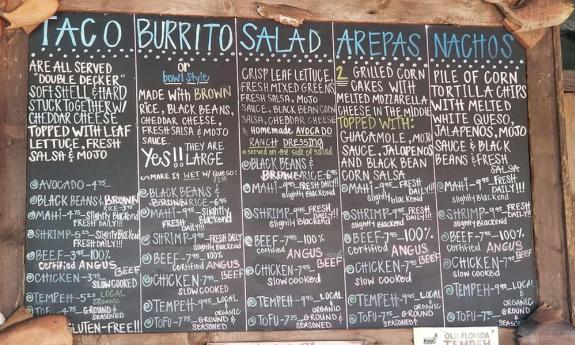 TACO
ARE ALL SERVED
"DOUBLE DECKER"
SOFT SHELL & HARD
STUCK TOGETHER W/
CHEDDAR CHEESE
TOPPED WITH LEAF
LETTUCE, FRESH
SALSA & MOJO
@AVOCADO-4.75
@BLACK BEANS & BROWN
RICE-3.95
@MAHI-4.75 slightly Blackened
FRESH DAILY!!!
@SHRIMP-5.25 slightly Blackened
FRESH DAILY!!!
@BEEF-3.95-100%
certified ANGUS
BEEF
@CHICKEN-3.95
SLOW COOKED
@TEMPEH-5.25 LOCAL
ORGANIC
@TOFU-4.75 GROUND &
SEASONED
GLUTEN-FREE!!
BURRITO
or
bowl style
MADE with BROWN
RICE, BLACK BEANS,
CHEDDAR CHEESE,
FRESH SALSA & MOJO
SAUCE.
Yes!! THEY ARE
LARGE
MAKE IT WET W/ QUESO:
@BLACK BEANS &
BROWN RICE-6.95
@MAHI-9.45 slightly
Blackened
FRESH DAILY!!!
@SHRIMP-9.45 FRESH DAILY
slightly Blackened
@BEEF-7.95-100%
certified ANGUS
BEEF
@CHICKEN-7.95
SLOW COOKED
@TEMPEH-9.95 LOCAL
ORGANIC
@TOFU-7.75 GROUND &
SEASONED
SALAD
CRISP LEAF LETTUCE,
FRESH MIXED GREENS,
FRESH SALSA, MOJO
SAUCE, BLACK BEAN CORN
SALSA, CHEDDAR CHEESE
& Homemade AVOCADO
RANCH DRESSING
served on the side of salad
@BLACK BEANS &
BROWN RICE-6.95
@MAHI-9.45 FRESH DAILY!!!
slightly Blackened
@SHRIMP-9.45 FRESH
DAILY!!!
slightly Blackened
@BEEF-7.95-100%
certified ANGUS
BEEF
@CHICKEN-7.95
slow cooked
@TEMPEH-9.95 LOCAL
ORGANIC
@TOFU-7.75 GROUND &
SEASONED
AREPAS
2 GRILLED CORN
CAKES WITH
MELTED MOZZARELLA
CHEESE IN THE MIDDLE
TOPPED WITH:
GUACAMOLE, MOJO
SAUCE, JALAPENOS
AND BLACK BEAN
CORN SALSA
@MAHI-9.45 FRESH
DAILY!!!
slightly Blackened
@SHRIMP-9.45 FRESH
DAILY!!!
slightly Blackened
@BEEF-7.95-100%
certified ANGUS
BEEF
@CHICKEN-7.95
slow cooked
@TEMPEH-9.95 LOCAL
ORGANIC
@TOFU-7.75 GROUND &
SEASONED
NACHOS
PILE OF CORN
TORTILLA CHIPS
WITH MELTED
WHITE QUESO,
JALAPENOS, MOJO
SAUCE & BLACK
BEANS & FRESH
SALSA
@MAHI-9.45 FRESH
DAILY!!!
slightly Blackened
@SHRIMP-9.45 FRESH
DAILY!!!
slightly Blackened
@BEEF-7.95-100%
certified ANGUS
BEEF
@CHICKEN-7.95
slow cooked
@TEMPEH-9.95 LOCAL
ORGANIC
@TOFU-7.75 GROUND &
SEASONED
"OLD FLORIDA"
TEMPEH